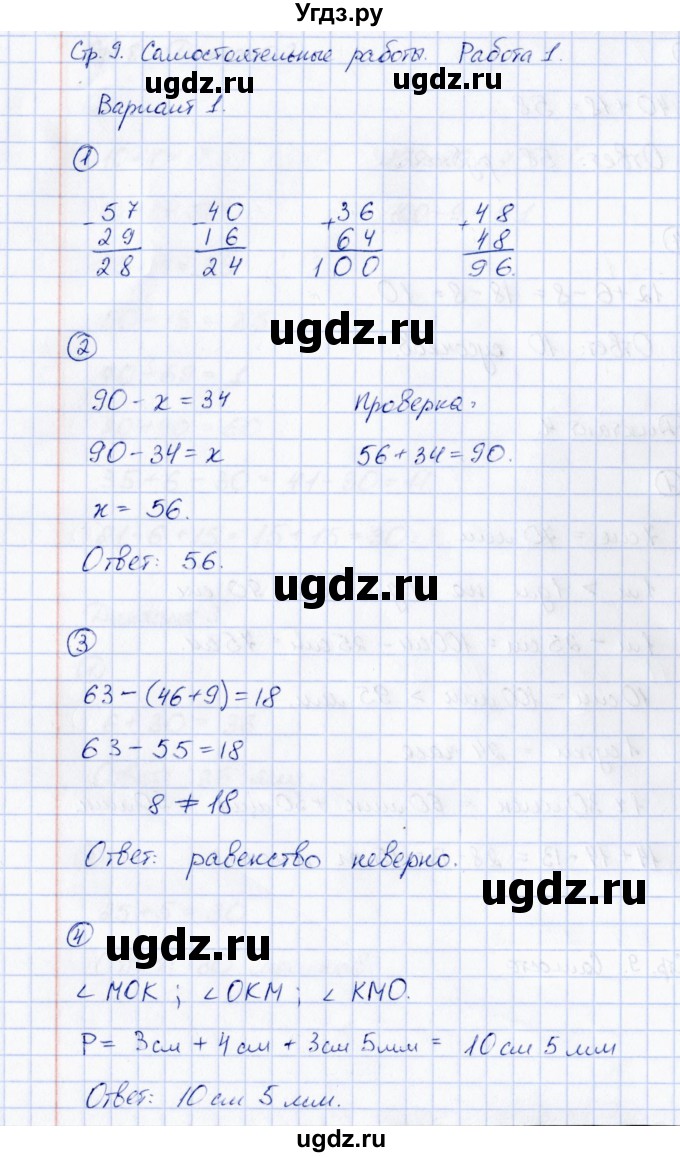 Угдз.ру
Стр. 9. Самостоятельные работы. Работа 1.
ugdz.ru ugdz.ru
Вариант 1.
1
- 57 - 40 + 36 + 48
29 16 64 48
28 24 100 96.
ugdz.ru
2
90 - x = 34 Проверка:
90 - 34 = x 56 + 34 = 90.
x = 56.
Ответ: 56.
ugdz.ru
3
63 - (46 + 9) = 18
63 - 55 = 18
8 ≠ 18
Ответ: равенство неверно.
ugdz.ru
4
ugdz.ru
∠ МОК ; ∠ ОКМ ; ∠ КМО.
P = 3 см + 4 см + 3 см 5 мм = 10 см 5 мм
Ответ: 10 см 5 мм.
ugdz.ru